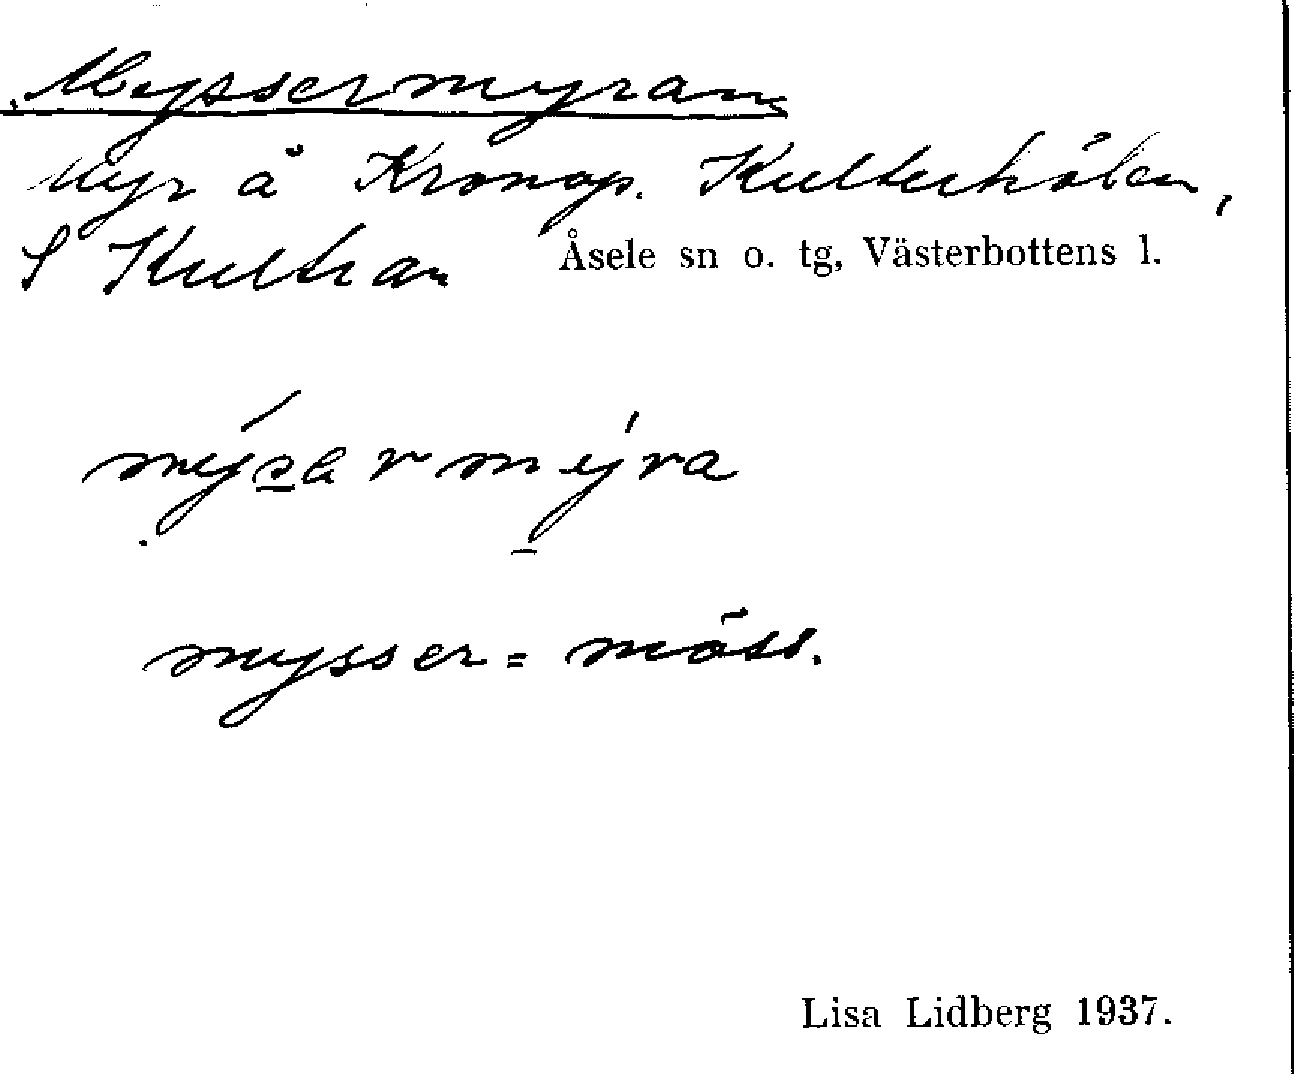 Myssermyran
Myr å Kronop. Kulterhölen,
S Kultran Åsele sn o. tg, Västerbottens l.
mýsarmýra
mysser = möss.
Lisa Lidberg 1937.